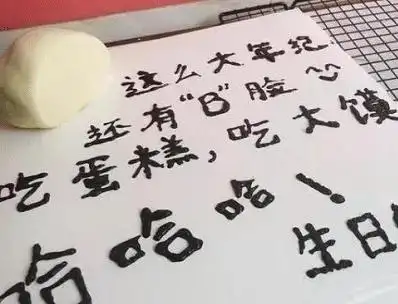 这么大年纪
还有“B”脸
吃蛋糕，吃大馍
哈哈哈！
生日